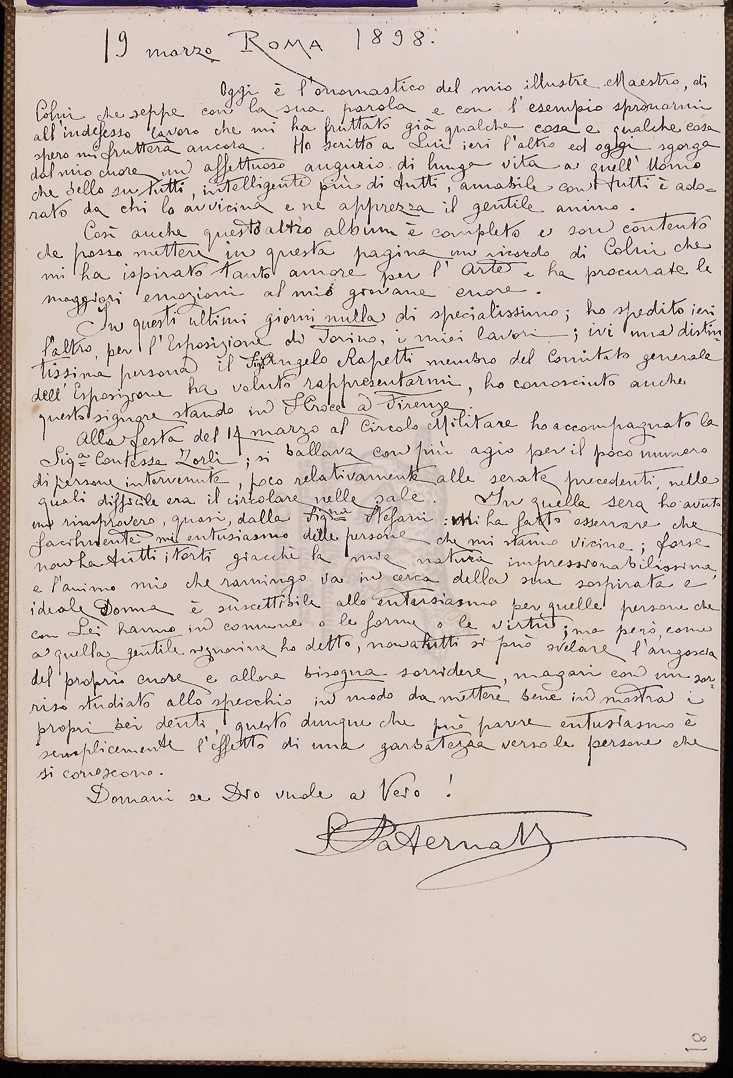 19 marzo ROMA 1898.
Oggi è l'onomastico del mio illustre Maestro, di
Colui che seppe con la sua parola e con l'esempio spronarmi
all'indefesso lavoro che mi ha fruttato già qualche cosa e qualche cosa
spero mi frutterà ancora. Ho scritto a Lui ieri l'altro ed oggi sgorga
dal mio cuore un affettuoso augurio di lunga vita a quell'Uomo
che bello su tutti, intelligente più di tutti, amabile con tutti è ado-
rato da chi lo avvicina e ne apprezza il gentile animo.
Così anche quest'altro album è completo e son contento
che posso mettere in questa pagina un ricordo di Colui che
mi ha ispirato tanto amore per l'Arte e ha procurate le
maggiori emozioni al mio giovane cuore.
In questi ultimi giorni nulla di specialissimo; ho spedito ieri
l'altro, per l'Esposizione di Torino, i miei lavori; ivi una distin-
tissima persona il Sigr Angelo Rapetti membro del Comitato generale
dell'Esposizione ha voluto rappresentarmi, ho conosciuto anche
questo signore stando in S. Croce a Firenze.
Alla festa del 14 marzo al Circolo Militare ho accompagnato la
Sig.a Contessa Zorli; si ballava con più agio per il poco numero
di persone intervenute, poco relativamente alle serate precedenti, nelle
quali difficile era il circolare nelle sale. In quella sera ho avuto
un rimprovero, quasi, dalla Sig.na Stefani: mi ha fatto osservare che
facilmente mi entusiasmo delle persone che mi stanno vicine; forse
non ha tutti i torti giacchè la mia natura impressionabilissima,
e l'animo mio che ramingo va in cerca della sua sospirata e
ideale Donna è suscettibile allo entusiasmo per quelle persone che
con Lei hanno in comune o le forme o le virtù; ma però, come
a quella gentile signorina ho detto, non a tutti si può svelare l'angoscia
del proprio cuore e allora bisogna sorridere, magari con un sor-
riso studiato allo specchio in modo da mettere bene in mostra i
propri bei denti, questo dunque che può parere entusiasmo è
semplicemente l'effetto di una garbatezza verso le persone che
si conoscono.
Domani se Dio vuole a Vero!
Paternal
18